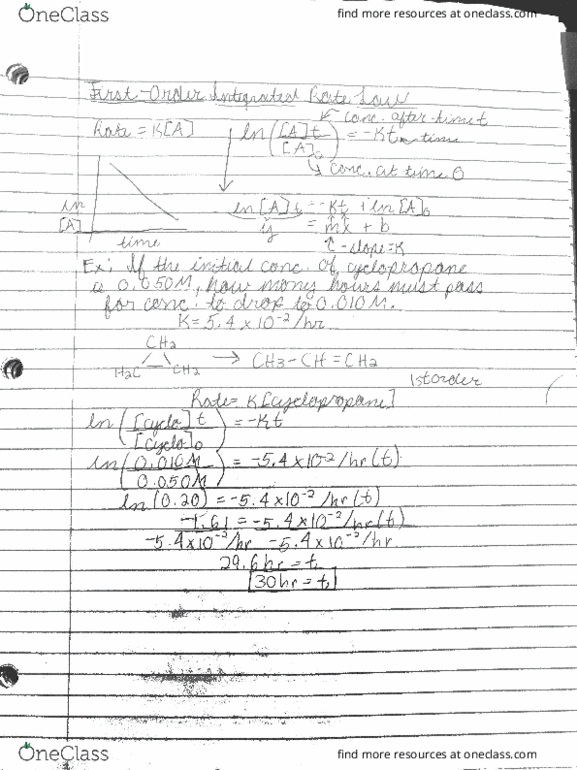 OneClass
find more resources at oneclass.com
First-Order Integrated Rate Law
conc. after time t
Rate = K[A]
ln([A]t/[A]0) = -Kt time
conc. at time 0
ln[A]t = -Kt + ln[A]0
y = mx + b
-slope=K
ln
[A]
time
Ex: If the initial conc. of cyclopropane
is 0.050M, how many hours must pass
for conc. to drop to 0.010M.
K = 5.4 x 10-2/hr
CH2
H2C CH2 → CH3-CH=CH2
1st order
Rate = K[cyclopropane]
ln([cyclo]t/[cyclo]0) = -Kt
ln(0.010M/0.050M) = -5.4x10-2/hr(t)
ln(0.20) = -5.4x10-2/hr(t)
-1.61 = -5.4x10-2/hr(t)
-5.4x10-2/hr -5.4x10-2/hr
29.6hr = t
30hr = t
OneClass
find more resources at oneclass.com